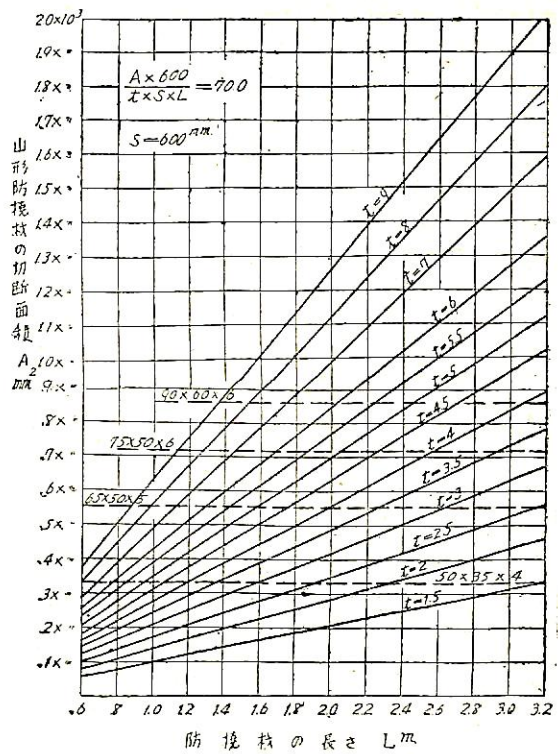 2.0×10³
1.9×〃
1.8×〃
1.7×〃
1.6×〃
1.5×〃
1.4×〃
1.3×〃
1.2×〃
1.1×〃
1.0×〃
.9×〃
.8×〃
.7×〃
.6×〃
.5×〃
.4×〃
.3×〃
.2×〃
.1×〃
山形防撓材の切断面積 A mm²
A×600
t×S×L
=70.0
S=600mm.
t=9
t=8
t=7
t=6
t=5.5
t=5
t=4.5
t=4
t=3.5
t=3
t=2.5
t=2
t=1.5
90×60×6
75×50×6
65×50×5
50×35×4
.6 .8 1.0 1.2 1.4 1.6 1.8 2.0 2.2 2.4 2.6 2.8 3.0 3.2
防撓材の長さ Lm